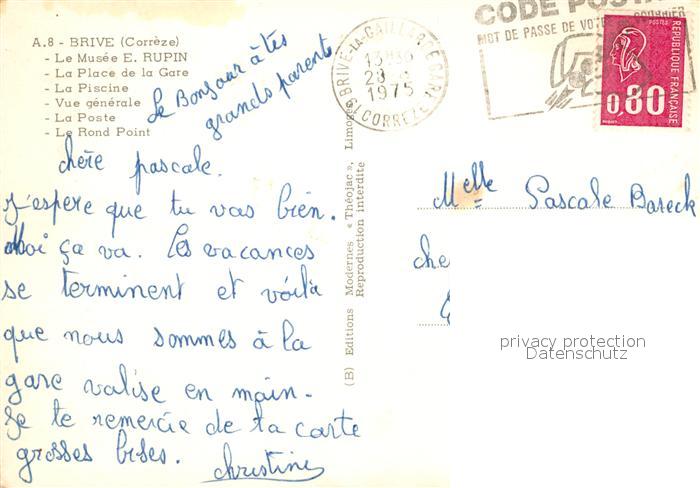 A.8 - BRIVE (Corrèze)
- Le Musée E. RUPIN
- La Place de la Gare
- La Piscine
- Vue générale
- La Poste
- Le Rond Point
Le Bonjour à tes
grands parents
chère pascale.
J'espère que tu vas bien.
Moi ça va. Les vacances
se terminent et voilà
que nous sommes à la
gare valise en main.
Je te remercie de ta carte
grosses bises.
Christine
(B) Editions Modernes « Théojac », Limoges
Reproduction interdite
BRIVE-LA-GAILLARDE GARE
1975
CORREZE
CODE POSTAL
MOT DE PASSE DE VOTRE COURRIER
POSTES
REPUBLIQUE FRANÇAISE
0,80
Melle Pascale Bareck
che
privacy protection
Datenschutz